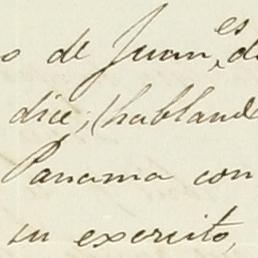 o de Juan, es de
dice; (habland
Panama con
su exercito,